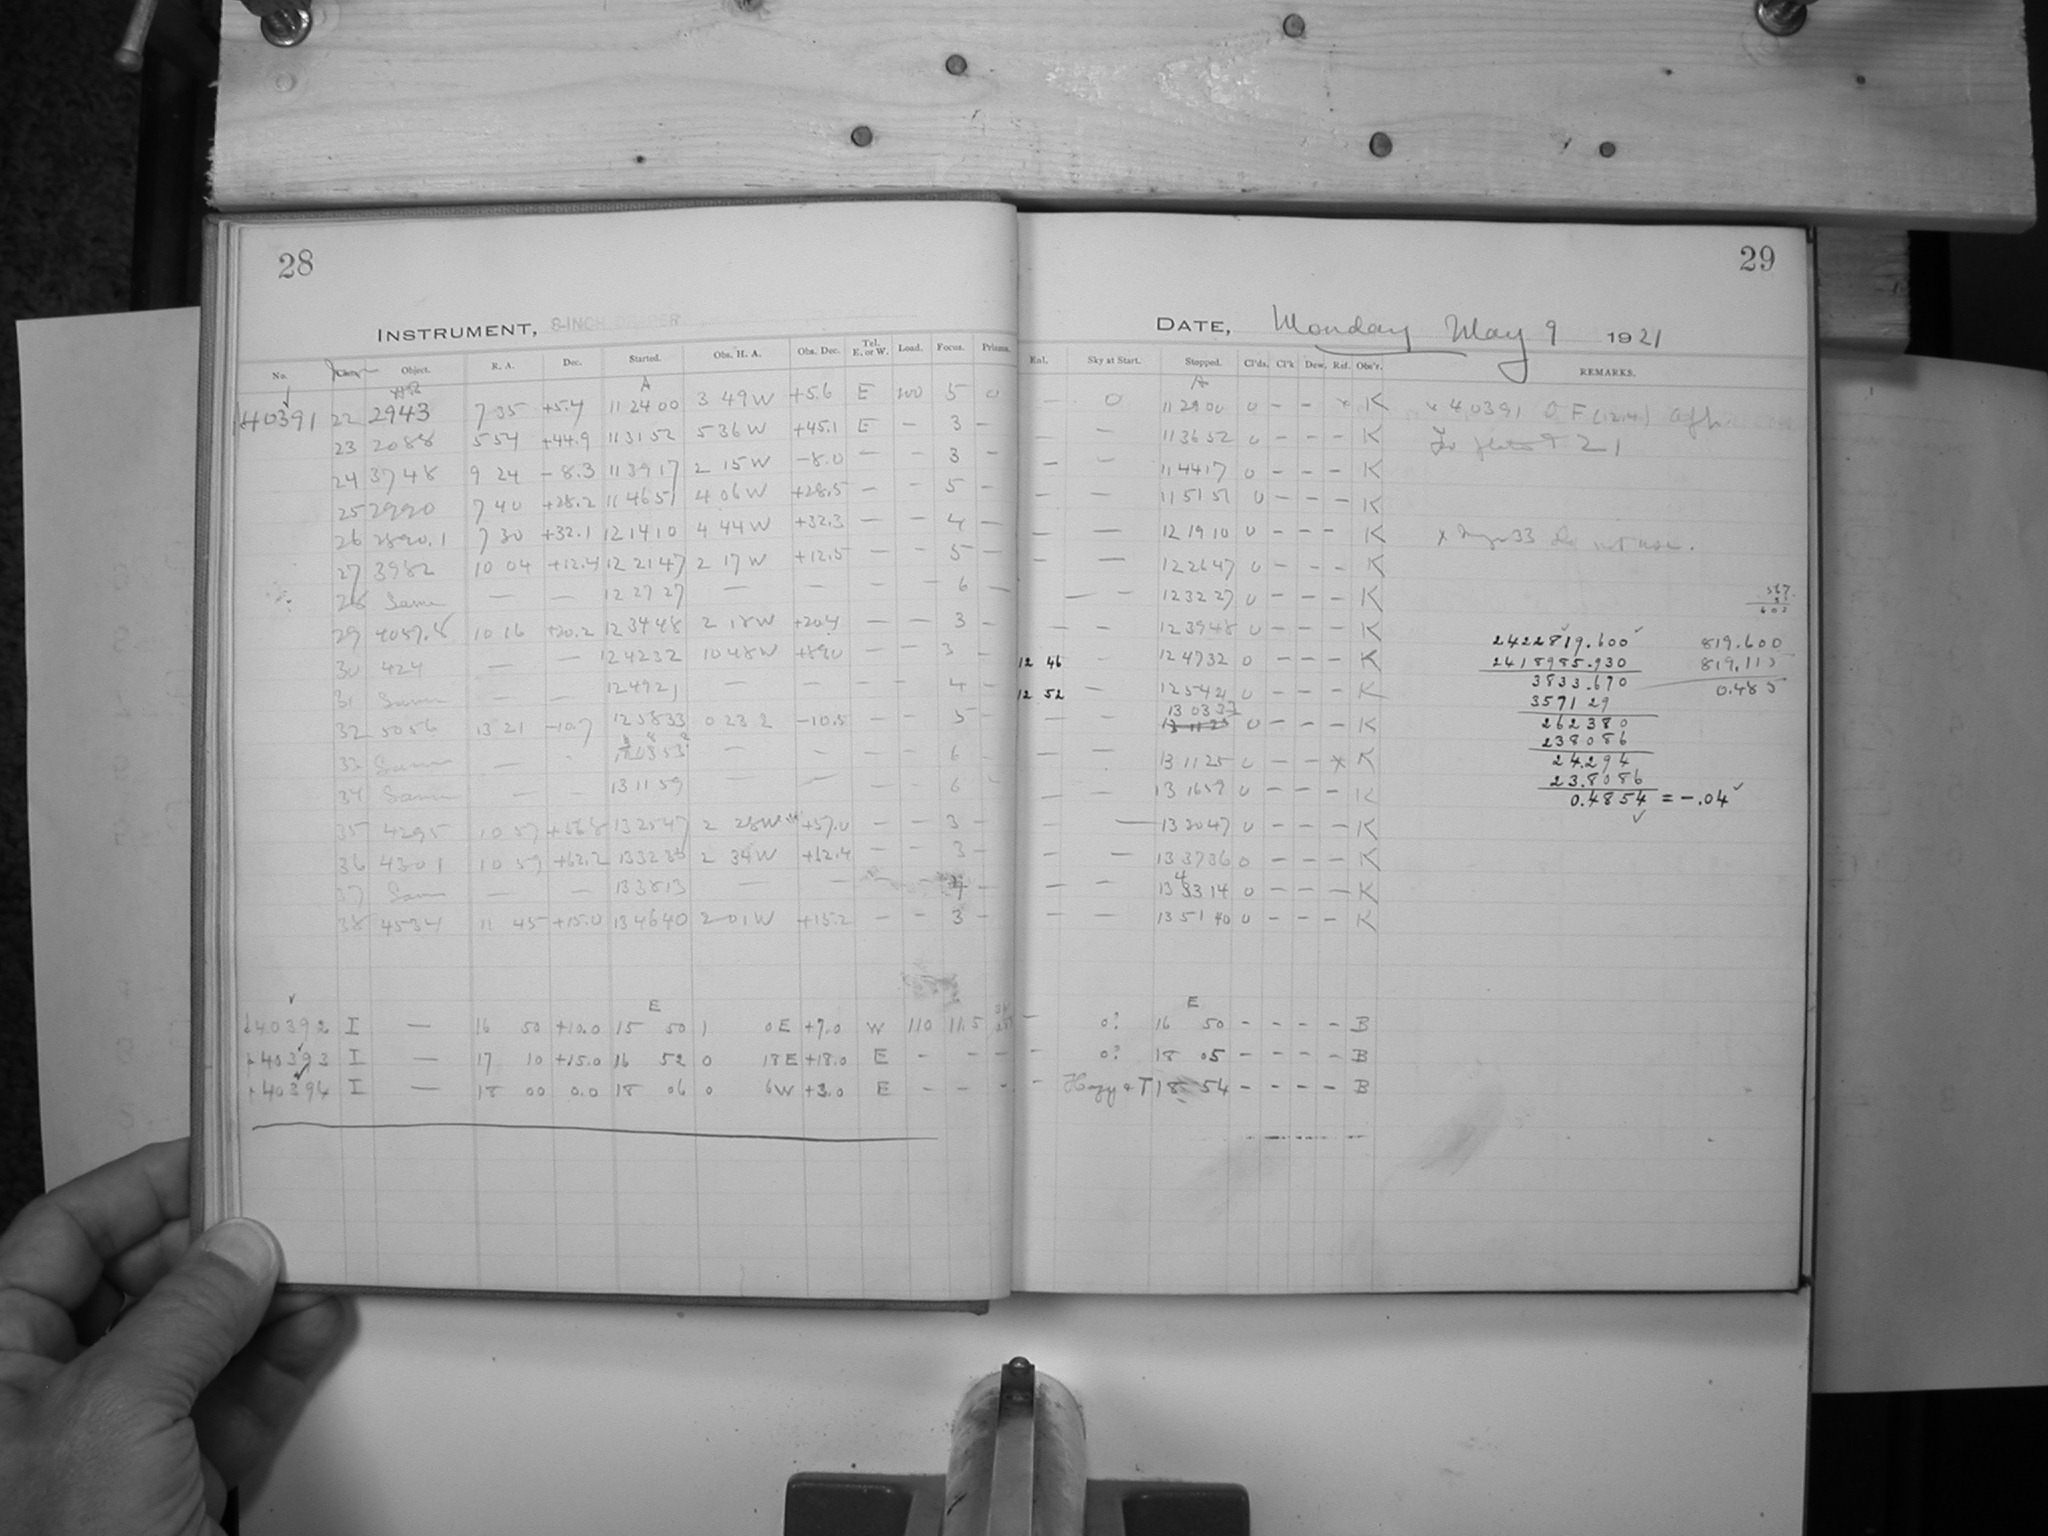 28
29
INSTRUMENT, 8-INCH DRAPER
DATE, Monday May 9 1921
No. Object. R. A. Dec. Started. Obs. H. A. Obs. Dec. Tel. E. or W. Load. Focus. Prisms. Enl. Sky at Start. Stopped. Cl'ds. Cl'k Dew. Ref. Obs'r. REMARKS.
A A
40391 22 2943 7 35 +5.4 11 24 00 3 49 W +5.6 E 100 5 0 — 0 11 29 00 0 – – × K × 40391
23 2088 5 54 +44.9 11 31 52 5 36 W +45.1 E – 3 – – – 11 36 52 0 – – – K 21
24 3748 9 24 –8.3 11 39 17 2 15 W –8.0 – – 3 – – 11 44 17 0 – – – K
25 2990 7 40 +28.2 11 46 51 4 06 W +28.5 – – 5 – – – 11 51 51 0 – – – K
26 2890.1 7 30 +32.1 12 14 10 4 44 W +32.3 – – 4 – – 12 19 10 0 – – – K × 33 do not use.
27 3982 10 04 +12.4 12 21 47 2 17 W +12.5 – – 5 – – – 12 26 47 0 – – – K
28 Same — — 12 27 27 — — – – 6 – — – 12 32 27 0 – – – K
29 4057.8 10 16 +20.2 12 34 48 2 18 W +20.4 – – 3 – – – 12 39 48 0 – – – K
30 424 — — 12 42 32 10 48 W +89.0 – – 3 – 12 46 – 12 47 32 0 – – – K
31 Same — — 12 49 21 — – – – 4 – 12 52 – 12 54 21 0 – – – K
32 5056 13 21 –10.7 12 58 33 0 23 2 –10.5 – – 5 – – – 13 03 33 0 – – – K
33 Same — – — – – – 6 – – – 13 11 25 0 – – × K
34 Same – – 13 11 59 — – – – 6 – – – 13 16 59 0 – – – K
35 4295 10 57 13 25 47 2 28 W +57.0 – – 3 – – — 13 20 47 0 – – – K
36 4301 10 59 +62.2 13 32 36 2 34 W +62.4 – – 3 – – – 13 37 36 0 – – – K
37 Same — – 13 38 13 — – – – 4 – – – 13 43 14 0 – – – K
38 4534 11 45 +15.0 13 46 40 2 01 W +15.2 – – 3 – – – 13 51 40 0 – – – K
2422819.600 819.600
2418985.930 819.115
3833.670 0.485
3571 29
262380
238086
24.294
23.8086
0.4854 = –.04
E E
40392 I — 16 50 +10.0 15 50 1 0 E +7.0 W 110 11.5 – 0? 16 50 – – – – B
40393 I — 17 10 +15.0 16 52 0 18 E +18.0 E – – – – 0? 18 05 – – – – B
40394 I — 18 00 0.0 18 06 0 6 W +3.0 E – – – – Hazy & T 18 54 – – – – B